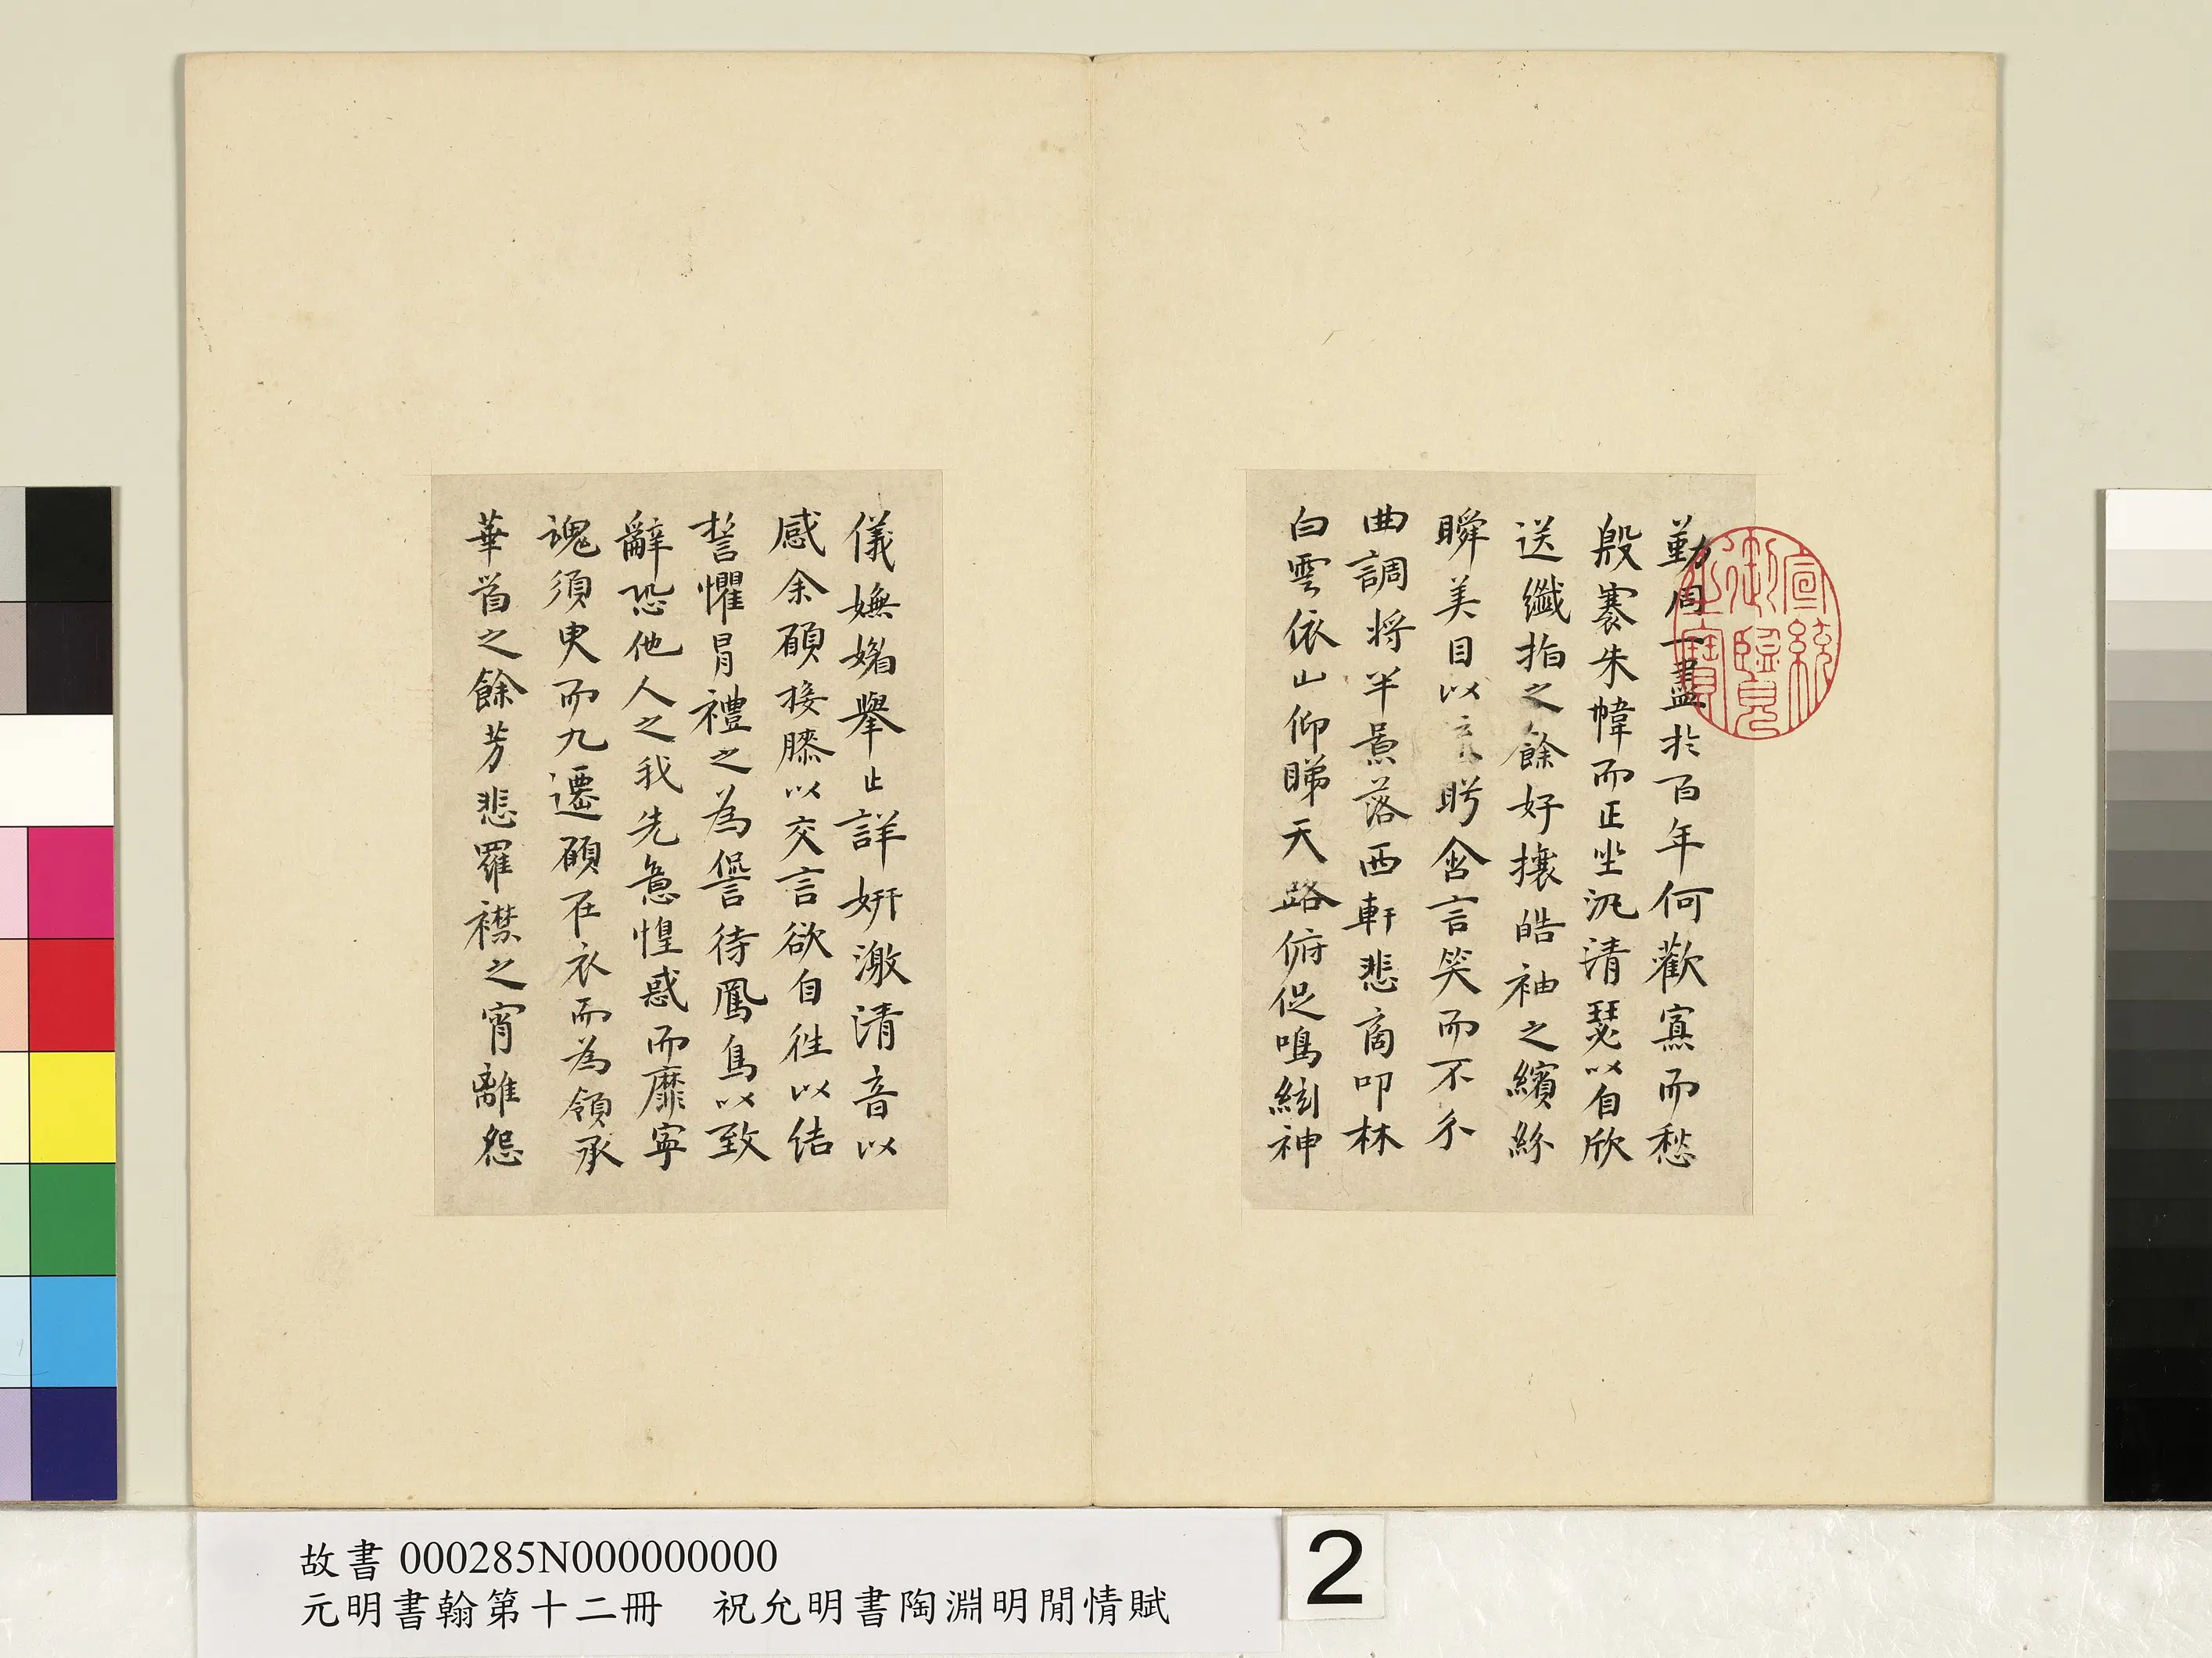 勤同一盡於百年何歡寡而愁
殷褰朱幃而正坐汎清瑟以自欣
送纖指之餘好攘皓袖之繽紛
瞬美目以流眄含言笑而不分
曲調將半景落西軒悲商叩林
白雲依山仰睇天路俯促鳴絃神
儀嫵媚舉止詳妍激清音以
感余願接膝以交言欲自往以結
誓懼冒禮之為諐待鳳鳥以致
辭恐他人之我先意惶惑而靡寧
魂須臾而九遷願在衣而為領承
華首之餘芳悲羅襟之宵離怨
宣統御覽之寶
故書 000285N000000000
元明書翰第十二冊 祝允明書陶淵明閒情賦
2